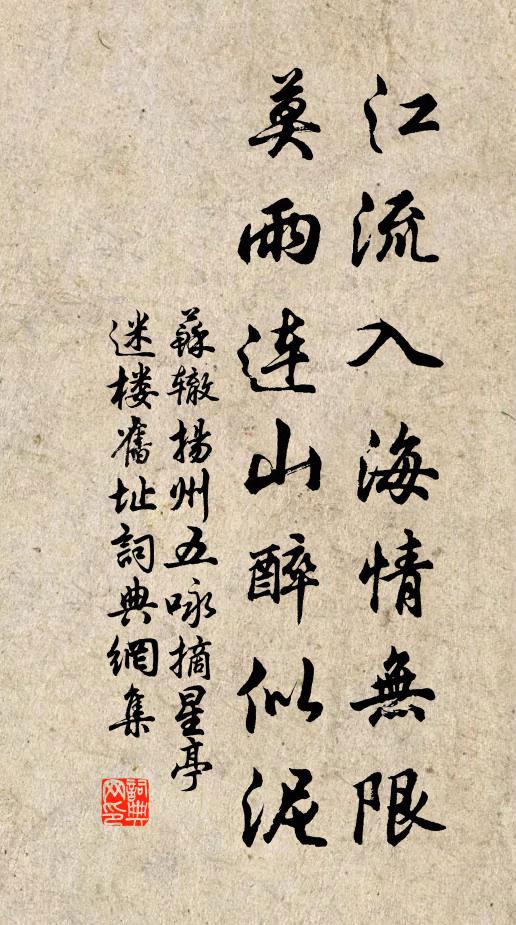 江流入海情無限
莫雨连山醉似泥
蘇辙揚州五咏摘星亭
迷楼舊址詞典網集
詞典网印